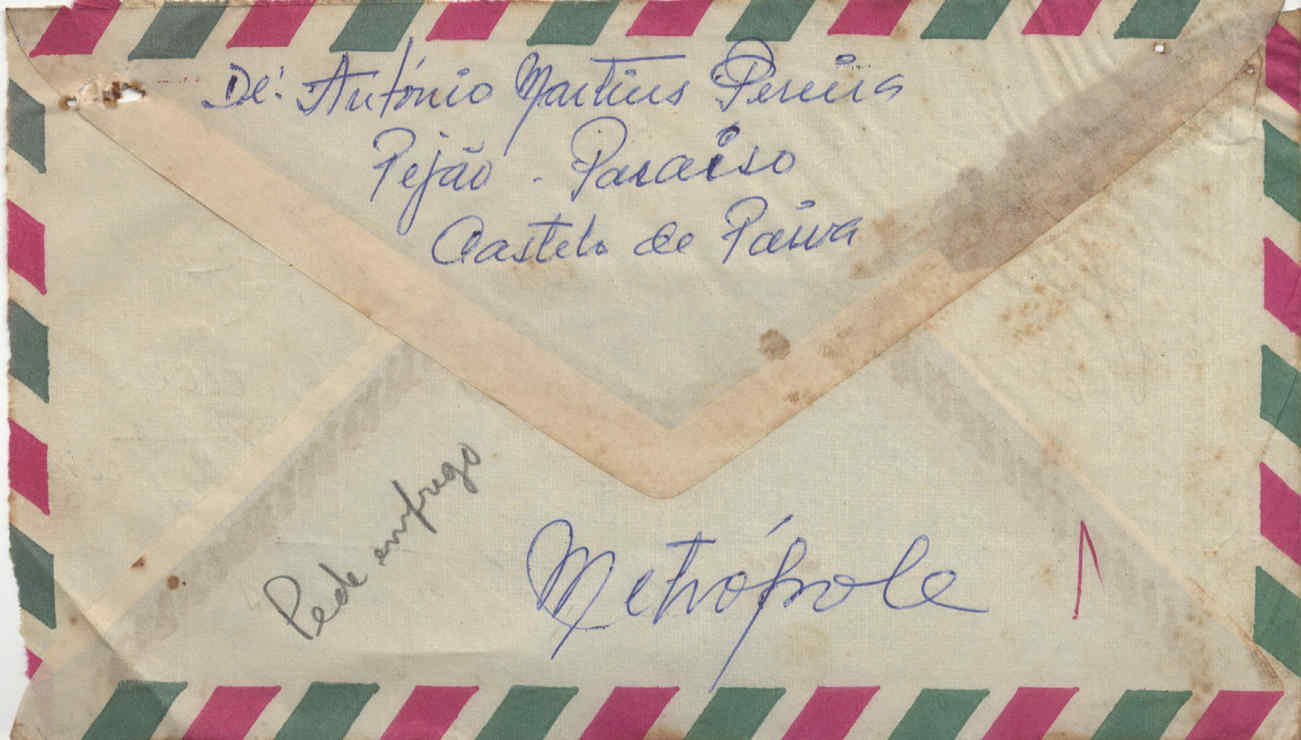 De: António Martins Pereira
Pejão - Paraiso
Castelo de Paiva
Pede emprego
Metrópole